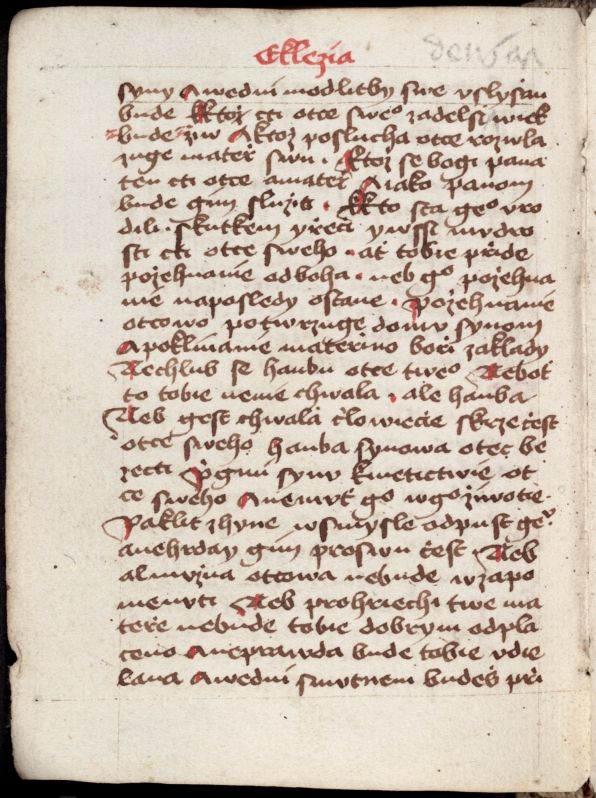 Ekkezia
syny Awedni modlitby swe uslyšan
bude Ktož cti otce sweº zadelši wiek
bude žiw Aktož poslucha otce rozwla
žuge mateř swu · Ktož se bogi pana
ten cti otce amateř Ajako panom
bude gim slúžiti · Kto sta geº uro
dili · skutkem yřeči ywssi mudro
sti cti otce sweho · at tobie přide
požehnanie odboha · neb gº požehna
nie naposledy ostane · požehnanie
otcowo potwrzuge domu synom
Apoklinanie materino boři zaklady
Nechlub se hanbu otce tweº Nebot
to tobie nenie chwala · ale hanba
Neb gest chwala člowiecie skrze čest
otce sweho hanba synowa otec be
zecti Prigmi synu kmetictwie ot
ce sweho Anemut gº wgº žiwotie ·
Paklit zhyne wsmysle odpust geº ·
anehrday gim proswu čest · Neb
almužna otcowa nebude wzapo
menuti Neb prohriechi twe ma
teře nebude tobie dobrym odpla
ceno Aneprawda bude tobie udie
lana Awedni smutnem budeš při